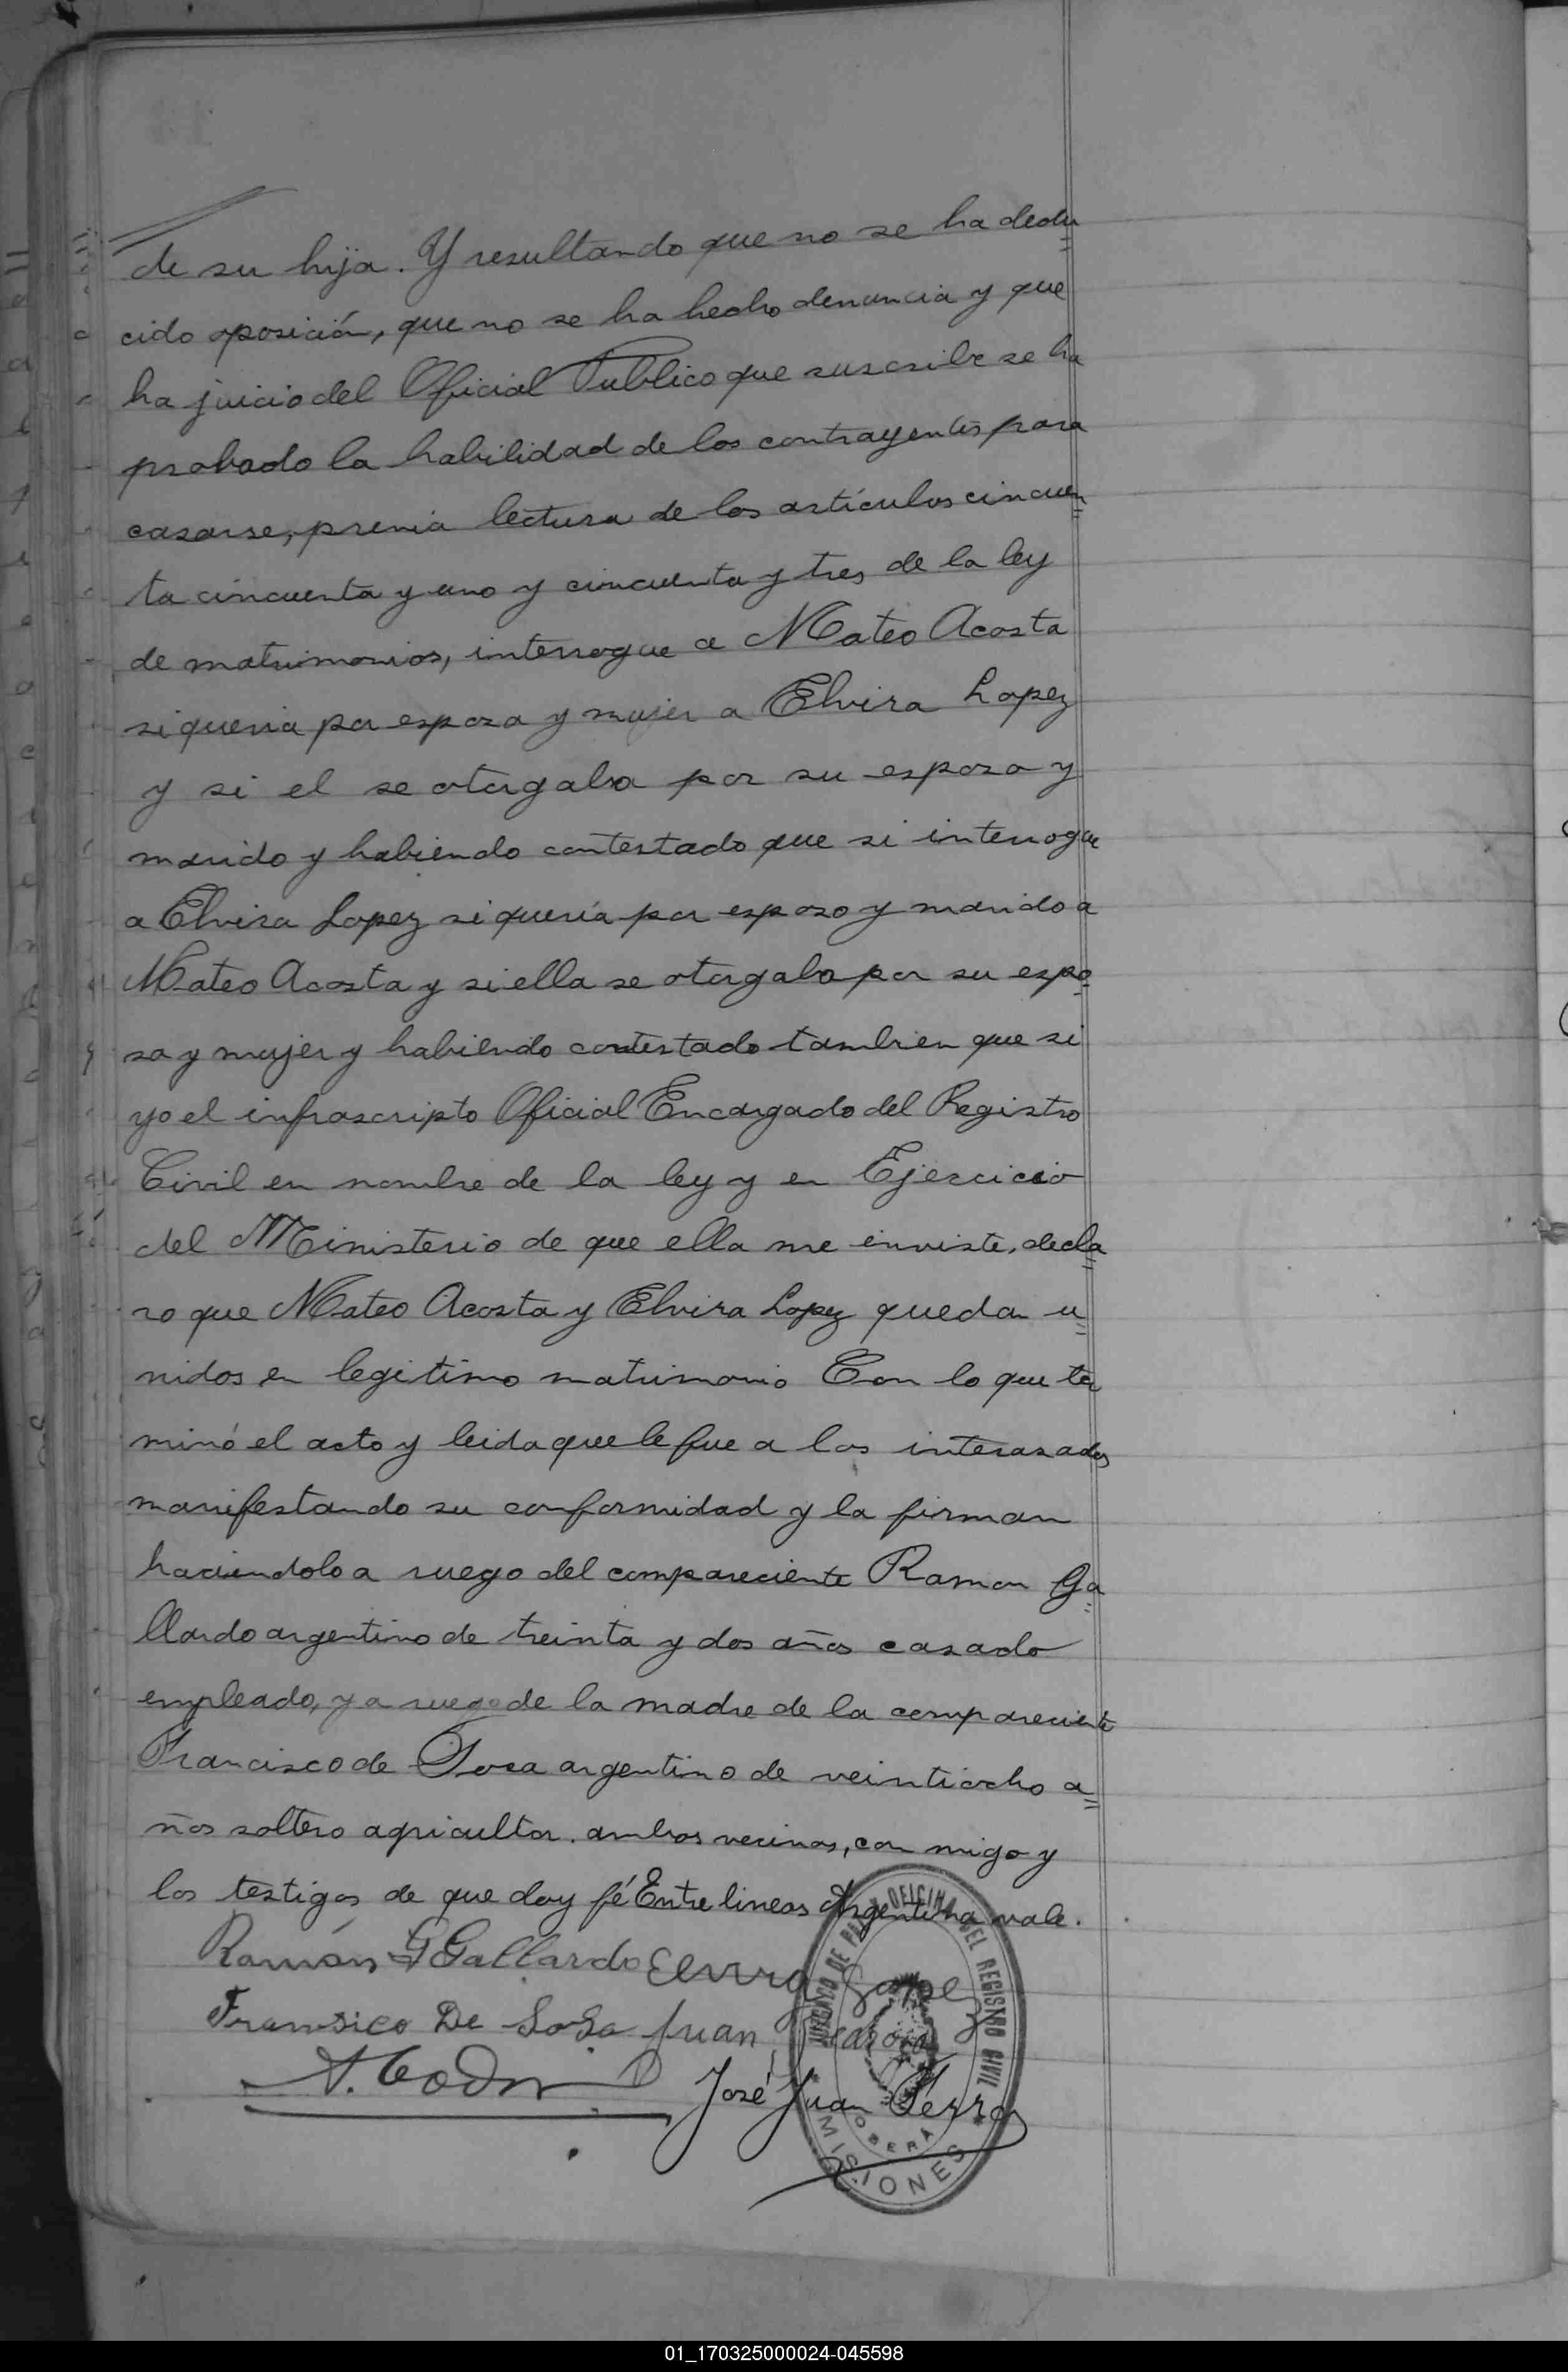 de su hija. Y resultando que no se ha dedu=
cido oposición, que no se ha hecho denuncia y que
ha juicio del Oficial Publico que suscribe se ha
probado la habilidad de los contrayentes para
casarse, previa lectura de los artículos cincuen=
ta cincuenta y uno y cincuenta y tres de la ley
de matrimonios, interrogue a Mateo Acosta
si queria por esposa y mujer a Elvira Lopez
y si el se otorgaba por su esposo y
marido y habiendo contestado que si interrogue
a Elvira Lopez si quería por esposo y marido a
Mateo Acosta y si ella se otorgaba por su espo=
sa y mujer y habiendo contestado tambien que si
yo el infrascripto Oficial Encargado del Registro
Civil en nombre de la ley y en Ejercicio
del Ministerio de que ella me enviste, decla=
ro que Mateo Acosta y Elvira Lopez quedan u=
nidos en legitimo matrimonio Con lo que ter
minó el acto y leida que le fue a los interasados
manifestando su conformidad y la firman
haciendolo a ruego del compareciente Ramon Ga=
llardo argentino de treinta y dos años casado
empleado, y a ruego de la madre de la compareciente
Francisco de Sosa argentino de veintiocho a=
ños soltero agricultor. ambos vecinos, con migo y
los testigos de que doy fé Entre lineas Argentina vale.
Ramón G Gallardo Elvira Lopez
Fransico De Sosa Juan
José Juan Ferro
JUZGADO DE PAZ Y OFICINA DEL REGISTRO CIVIL
OBERA
MISIONES
01_170325000024-045598